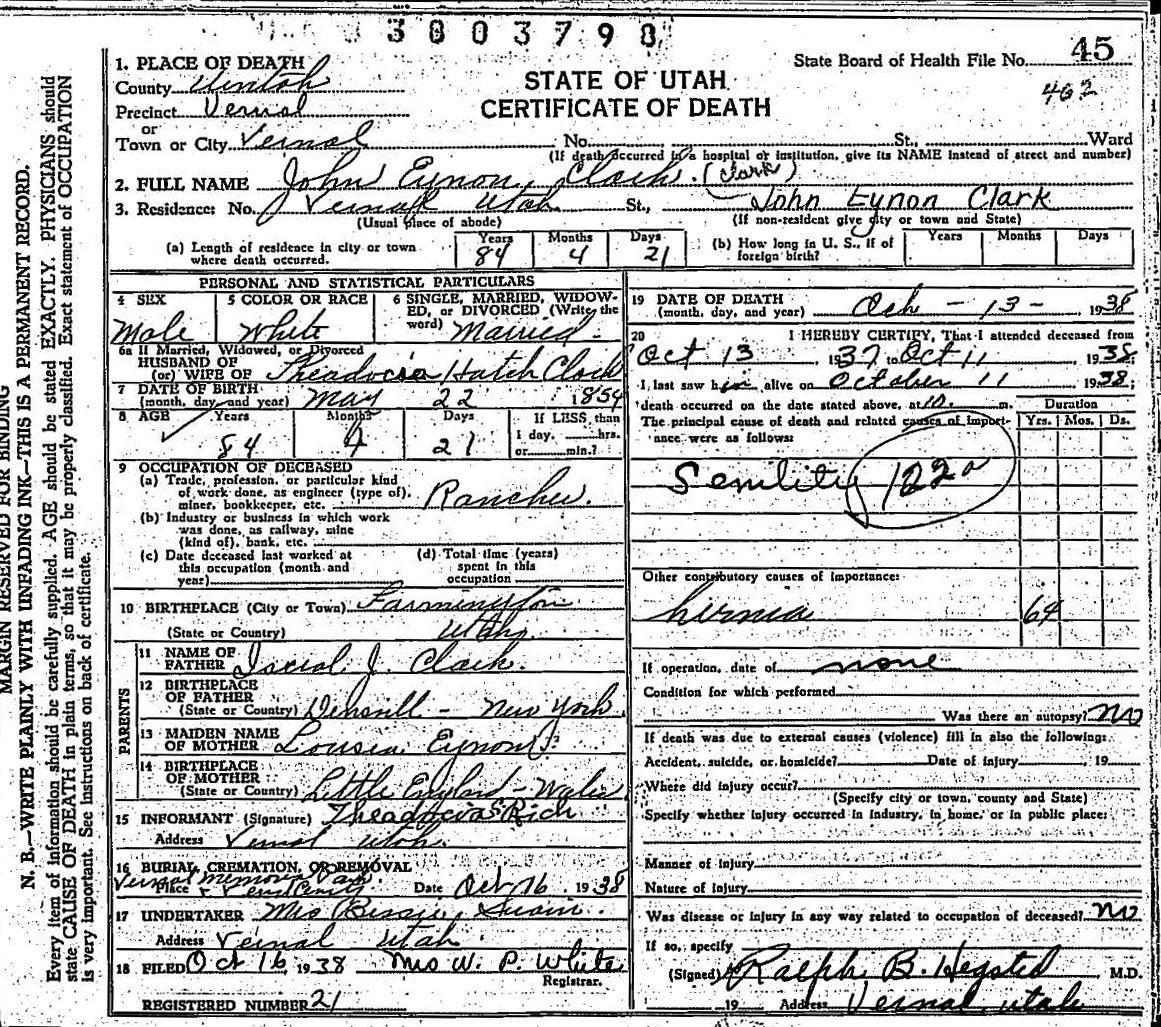 3803798
State Board of Health File No. 45
462
STATE OF UTAH
CERTIFICATE OF DEATH
1. PLACE OF DEATH
County Uintah
Precinct Vernal
or
Town or City Vernal No. St., Ward
(If death occurred in a hospital or institution, give its NAME instead of street and number)
2. FULL NAME John Eynon Clark. (Clark)
3. Residence: No. Vernal Utah St., John Eynon Clark
(Usual place of abode) (If non-resident give city or town and State)
(a) Length of residence in city or town where death occurred. Years 84 Months 4 Days 21 (b) How long in U. S., if of foreign birth? Years Months Days
PERSONAL AND STATISTICAL PARTICULARS
4 SEX Male
5 COLOR OR RACE White
6 SINGLE, MARRIED, WIDOWED, or DIVORCED (Write the word) Married
6a If Married, Widowed, or Divorced
HUSBAND OF
(or) WIFE OF Theadocia Hatch Clark
7 DATE OF BIRTH
(month, day and year) May 22 1854
8 AGE Years 84 Months 4 Days 21 If LESS than 1 day, hrs. or min.?
9 OCCUPATION OF DECEASED
(a) Trade, profession, or particular kind of work done, as engineer (type of), miner, bookkeeper, etc. Rancher.
(b) Industry or business in which work was done, as railway, mine (kind of), bank, etc.
(c) Date deceased last worked at this occupation (month and year)
(d) Total time (years) spent in this occupation
10 BIRTHPLACE (City or Town) Farmington
(State or Country) Utah.
PARENTS
11 NAME OF FATHER Isreal J. Clark.
12 BIRTHPLACE OF FATHER
(State or Country) - New York
13 MAIDEN NAME OF MOTHER Lousia Eynon
14 BIRTHPLACE OF MOTHER
(State or Country) Little England - Wales
15 INFORMANT (Signature) Theadocia Rich
Address Vernal Utah.
16 BURIAL, CREMATION, OR REMOVAL
Place Vernal Memorial Park Date Oct 16, 1938
17 UNDERTAKER Mrs Bessie Swain.
Address Vernal Utah.
18 FILED Oct 16, 1938 Mrs W. P. White
Registrar.
REGISTERED NUMBER 21
19 DATE OF DEATH
(month, day, and year) Oct - 13 - 1938
20 I HEREBY CERTIFY, That I attended deceased from
Oct 13 1937 to Oct 11 1938
I last saw him alive on October 11 1938;
death occurred on the date stated above, at 10 m. Duration
The principal cause of death and related causes of importance were as follows: Yrs. Mos. Ds.
Senility 122a
Other contributory causes of importance:
hernia 64
If operation, date of none
Condition for which performed
Was there an autopsy? No
If death was due to external causes (violence) fill in also the following:
Accident, suicide, or homicide? Date of injury 19
Where did injury occur?
(Specify city or town, county and State)
Specify whether injury occurred in industry, in home, or in public place:
Manner of Injury
Nature of Injury
Was disease or injury in any way related to occupation of deceased? No
If so, specify
(Signed) Ralph B. Hegsted M.D.
19 Address Vernal, Utah
MARGIN RESERVED FOR BINDING
N. B.—WRITE PLAINLY WITH UNFADING INK—THIS IS A PERMANENT RECORD.
Every item of information should be carefully supplied. AGE should be stated EXACTLY. PHYSICIANS should
state CAUSE OF DEATH in plain terms, so that it may be properly classified. Exact statement of OCCUPATION
is very important. See instructions on back of certificate.